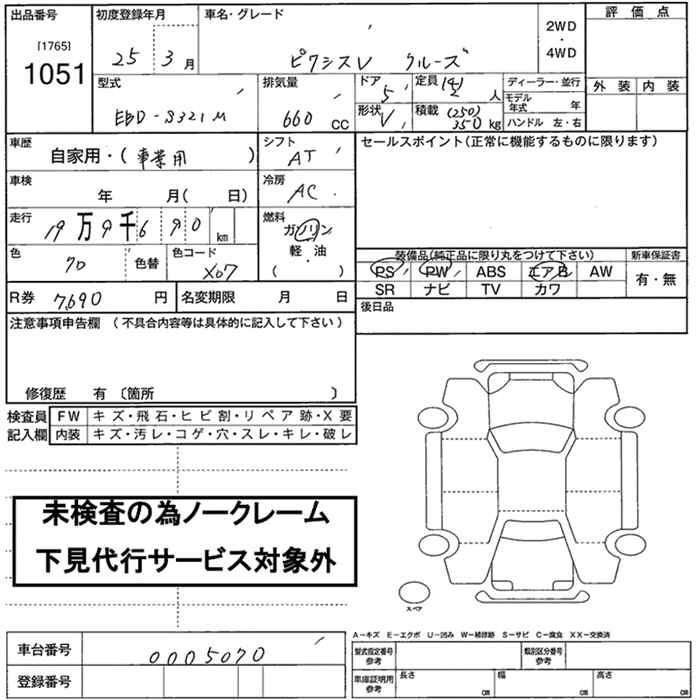 出品番号 初度登録年月 車名・グレード 2WD・4WD 評価点
[1765]
1051 25 3月 ピクシスV クルーズ
型式 排気量 ドア 定員 人 ディーラー・並行 外装 内装
EBD-S321M 660 CC 5 モデル年式 年
形状 V 積載 (250) 350 kg ハンドル 左・右
車歴 自家用・(事業用) シフト AT セールスポイント(正常に機能するものに限ります)
車検 年 月( 日) 冷房 AC
走行 19万9千6 90 km 燃料 ガソリン
軽・油
( ・ )
色 70 色替 色コード X07 装備品(純正品に限り丸をつけて下さい) 新車保証書
PS PW ABS エアB AW 有・無
R券 7,690 円 名変期限 月 日 SR ナビ TV カワ
後日品
注意事項申告欄 (不具合内容等は具体的に記入して下さい)
修復歴 有 〔箇所 〕
検査員 FW キズ・飛石・ヒビ割・リペア跡・X要
記入欄 内装 キズ・汚レ・コゲ・穴・スレ・キレ・破レ
未検査の為ノークレーム
下見代行サービス対象外
スペア
A−キズ E−エクボ U−凹み W−補修跡 S−サビ C−腐食 XX−交換済
車台番号 0005070 型式指定番号 参考 類別区分番号 参考
登録番号 車庫証明用 参考 長さ cm 幅 cm 高さ cm